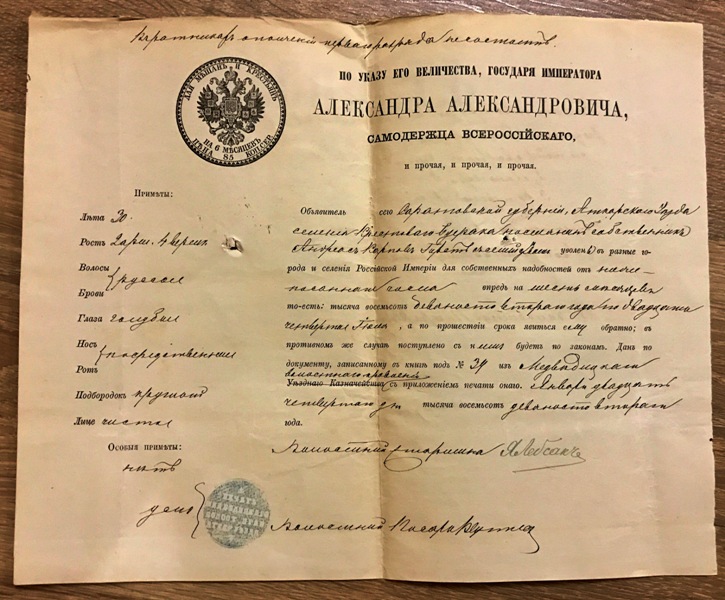 въ ратникахъ ополченія перваго разряда не состоитъ.
ДЛЯ МѢЩАНЪ И КРЕСТЬЯНЪ
НА 6 МѢСЯЦЕВЪ
ЦѢНА 85 КОП. СЕР.
ПО УКАЗУ ЕГО ВЕЛИЧЕСТВА, ГОСУДАРЯ ИМПЕРАТОРА
АЛЕКСАНДРА АЛЕКСАНДРОВИЧА,
САМОДЕРЖЦА ВСЕРОССІЙСКАГО,
и прочая, и прочая, и прочая.
Примѣты:
Лѣта 30
Ростъ 2 арш. 4 верш.
Волосы
Брови
русые
Глаза голубые
Носъ
Ротъ
посредственные
Подбородокъ круглый
Лице чистое
Особыя примѣты:
нѣтъ
Объявитель сего Саратовской губерніи, Аткарскаго Уѣзда
селенія поселянинъ собственникъ
Андреасъ уволенъ въ разные го-
рода и селенія Россійской Имперіи для собственныхъ надобностей отъ ниже-
писаннаго числа впредь на шесть мѣсяцевъ
то-есть: тысяча восемьсотъ девяносто втораго года по двадцать
четвертое Іюля, а по прошествіи срока явиться ему обратно; въ
противномъ же случаѣ поступлено съ нимъ будетъ по законамъ. Данъ по
документу, записанному въ книгѣ подъ № 34 изъ Медведицкаго
волостнаго правленія
Уѣзднаго Казначейства съ приложеніемъ печати онаго. Января двадцать
четвертаго дня тысяча восемьсотъ девяносто втораго
года.
Волостной старшина
Волостной Писарь